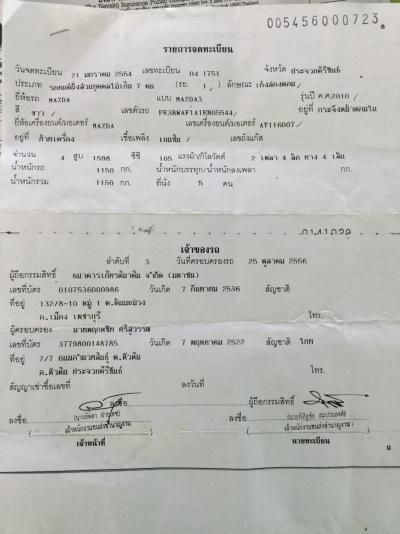 The Navakij Insurance Public
005456000723
รายการจดทะเบียน
วันจดทะเบียน 21 มกราคม 2554 เลขทะเบียน 04 1751 จังหวัด ประจวบคีรีขันธ์
ประเภท รถยนต์นั่งส่วนบุคคลไม่เกิน 7 คน (รย. 1 ) ลักษณะ เก๋งสองตอน
ยี่ห้อรถ MAZDA แบบ MAZDA3 รุ่นปี ค.ศ. 2010
สี ขาว เลขตัวรถ อยู่ที่
ยี่ห้อเครื่องยนต์/มอเตอร์ MAZDA เลขเครื่องยนต์/มอเตอร์ AT116007
อยู่ที่ เชื้อเพลิง เบนซิน เลขถังแก๊ส
จำนวน 4 สูบ 1598 ซีซี 105 แรงม้า/กิโลวัตต์ 2 เพลา 4 ล้อ ยาง 4 เส้น
น้ำหนักรถ 1150 กก. น้ำหนักบรรทุก/น้ำหนักลงเพลา กก.
น้ำหนักรวม 1150 กก. ที่นั่ง 5 คน
เจ้าของรถ
ลำดับที่ 3 วันที่ครอบครองรถ 25 ตุลาคม 2556
ผู้ถือกรรมสิทธิ์ ธนาคารเกียรตินาคิน จำกัด (มหาชน)
เลขที่บัตร 0107536000986 วันเกิด 7 กันยายน 2536 สัญชาติ
ที่อยู่ 132/8-10 หมู่ 1 ต.ต้นมะม่วง
อ.เมือง เพชรบุรี โทร.
ผู้ครอบครอง ศรีสุวรรส
เลขที่บัตร 3779800148785 วันเกิด 7 พฤษภาคม 2522 สัญชาติ ไทย
ที่อยู่ 2/7 ต.หัวหิน
อ.หัวหิน ประจวบคีรีขันธ์ โทร.
สัญญาเช่าซื้อเลขที่ ลงวันที่
ลงชื่อ ผู้ถือกรรมสิทธิ์
ลงชื่อ ลงชื่อ
เจ้าพนักงานขนส่งชำนาญงาน เจ้าพนักงานขนส่งชำนาญงาน
เจ้าหน้าที่ นายทะเบียน